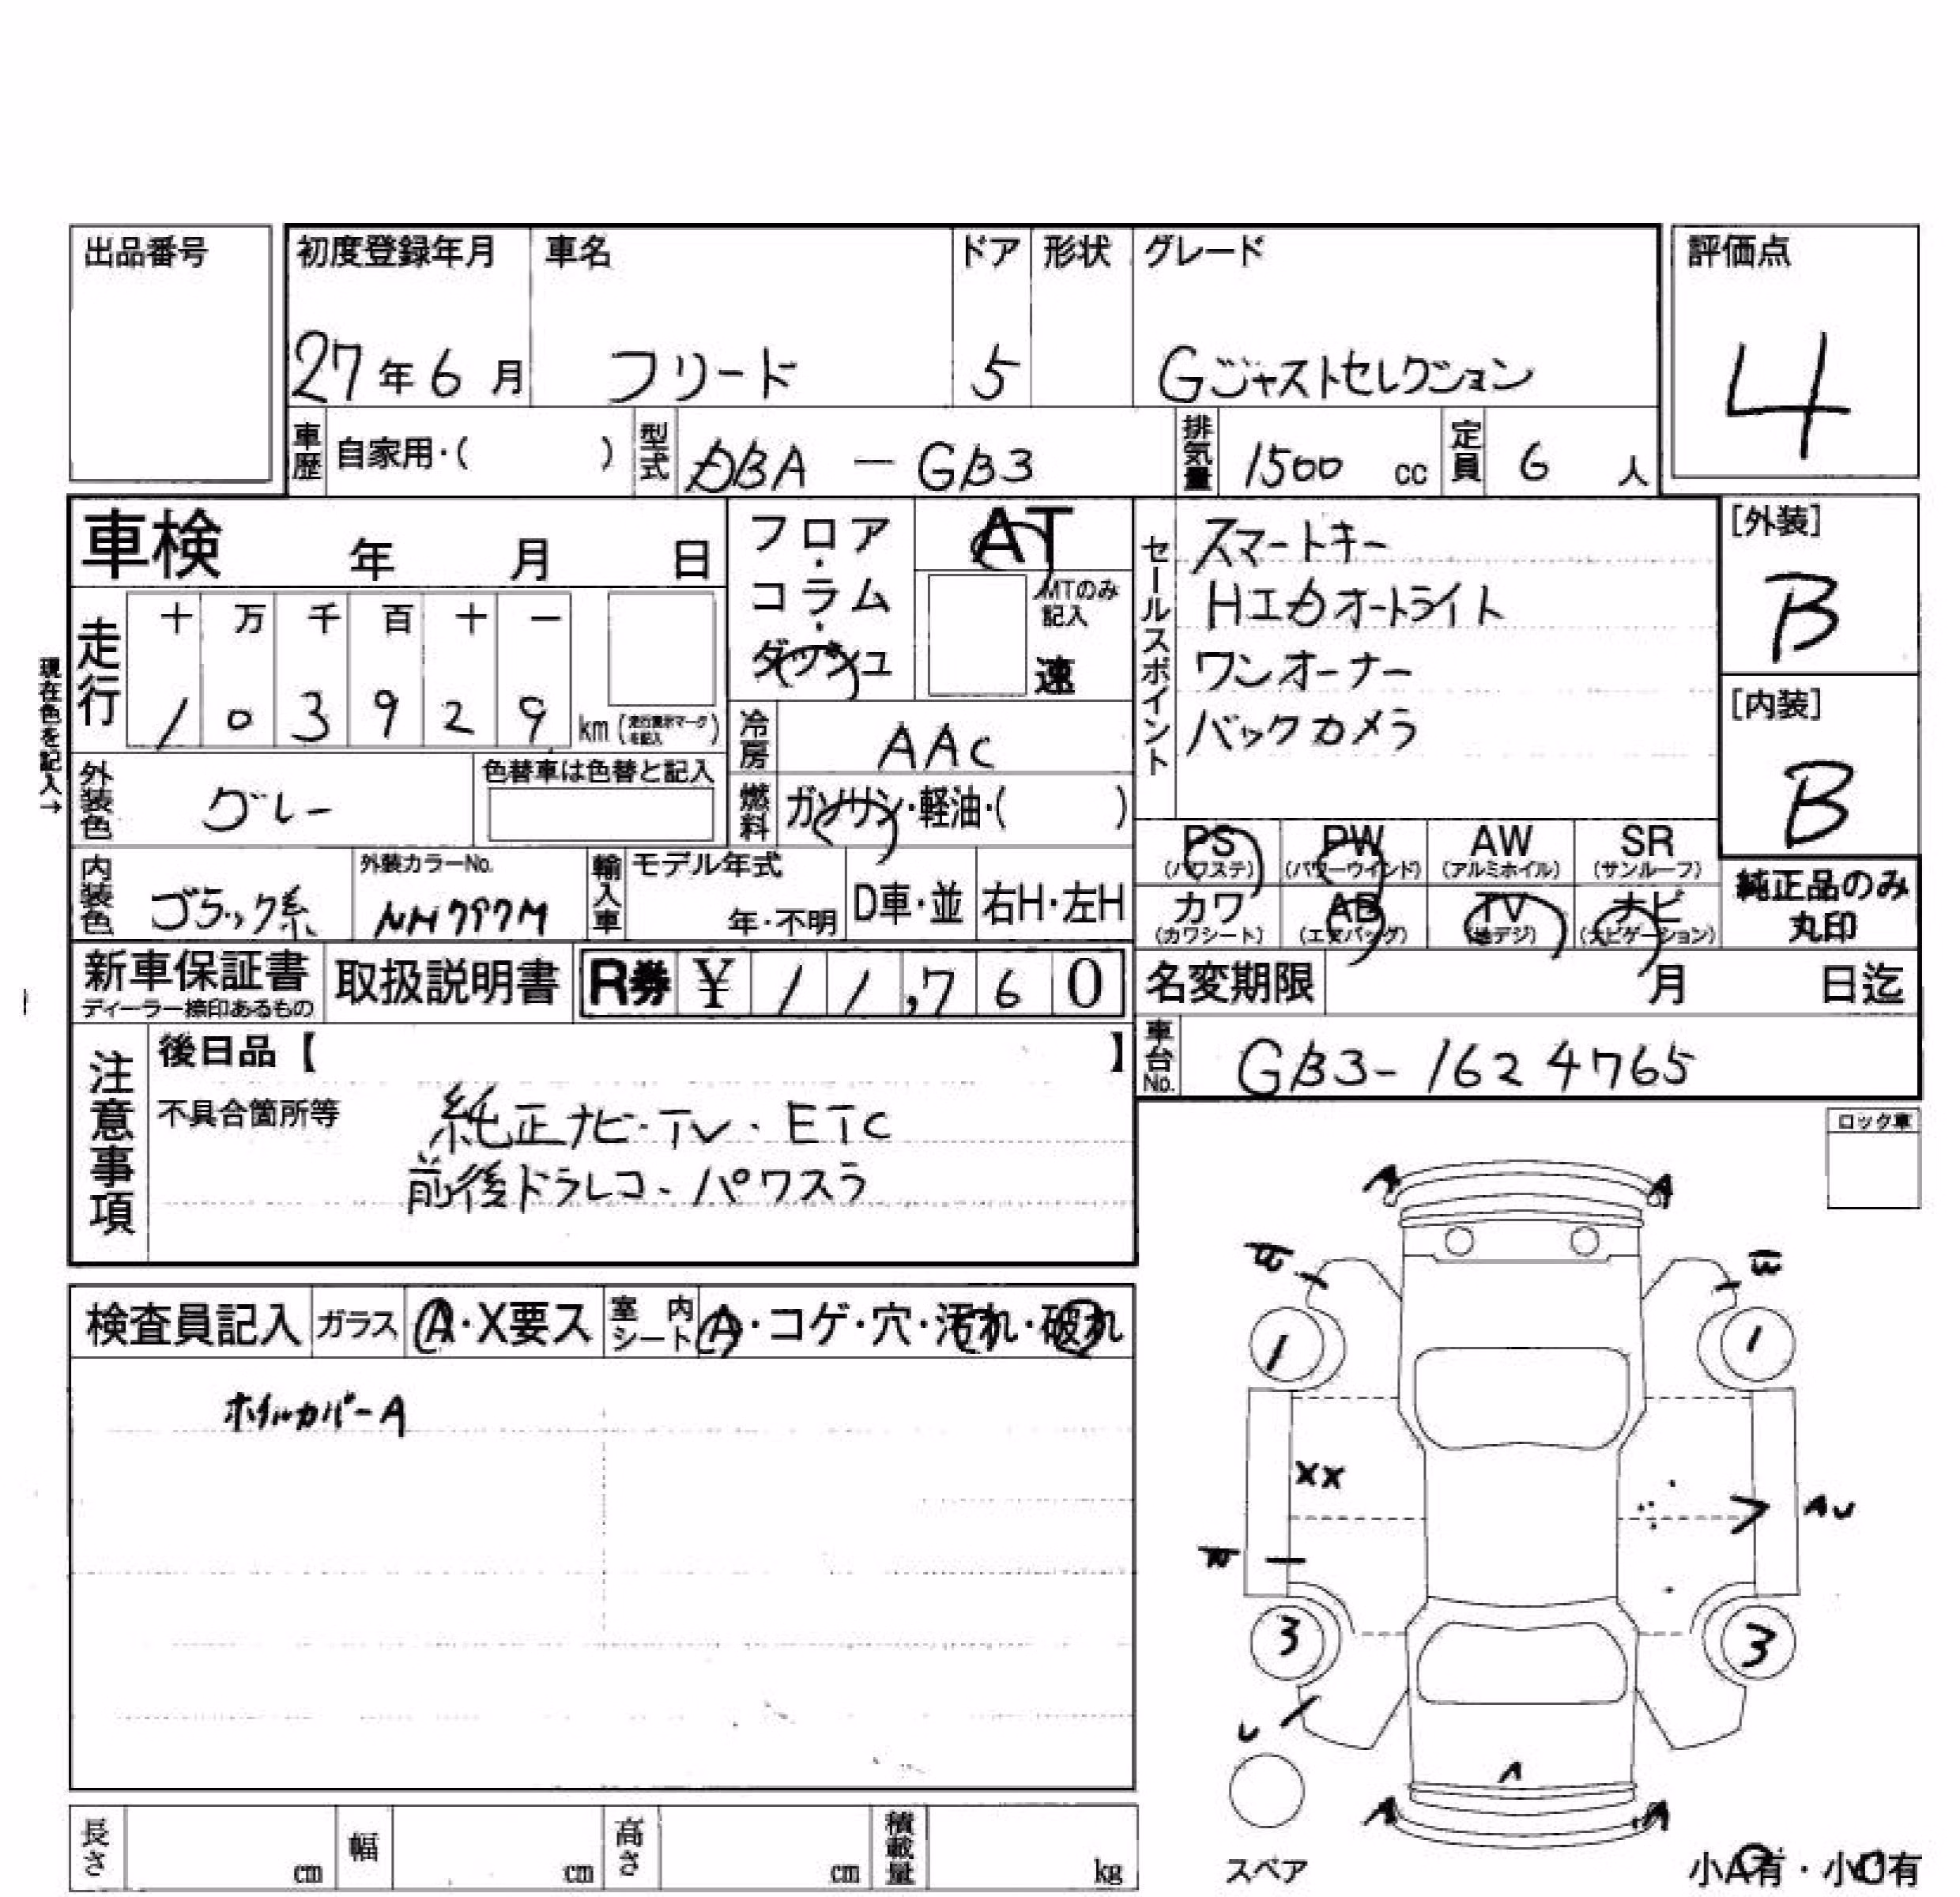 出品番号
初度登録年月 車名 ドア 形状 グレード 評価点
27年6月 フリード 5 Gジャストセレクション 4
車歴 自家用・( ) 型式 DBA - GB3 排気量 1500 cc 定員 6 人
車検 年 月 日
フロア・コラム・ダッシュ
AT
MTのみ記入
速
セールスポイント
スマートキー
HIDオートライト
ワンオーナー
バックカメラ
[外装]
B
[内装]
B
現在色を記入→
走行
十 万 千 百 十 一
1 0 3 9 2 9 km
冷房 AAC
外装色 グレー 色替車は色替と記入
燃料 ガソリン・軽油・( )
内装色 ブラック系 外装カラーNo. NH797M
輸入車 モデル年式 年・不明 D車・並 右H・左H
PS (パワステ) PW (パワーウインド) AW (アルミホイル) SR (サンルーフ)
カワ (カワシート) AB (エアバッグ) TV (地デジ) ナビ (ナビゲーション)
純正品のみ
丸印
新車保証書 ディーラー捺印あるもの 取扱説明書 R券 ¥ 11,760
名変期限 月 日迄
車台No. GB3-1624765
注意事項
後日品【 】
不具合箇所等 純正ナビ・TV・ETC
前後ドラレコ・パワスラ
ロック車
検査員記入 ガラス A・X要ス 室内シート A・コゲ・穴・汚れ・破れ
ホイルカバーA
A A
1 1
XX
AU
3 3
U
A
A A
スペア
小A有・小U有
長さ cm 幅 cm 高さ cm 積載量 kg